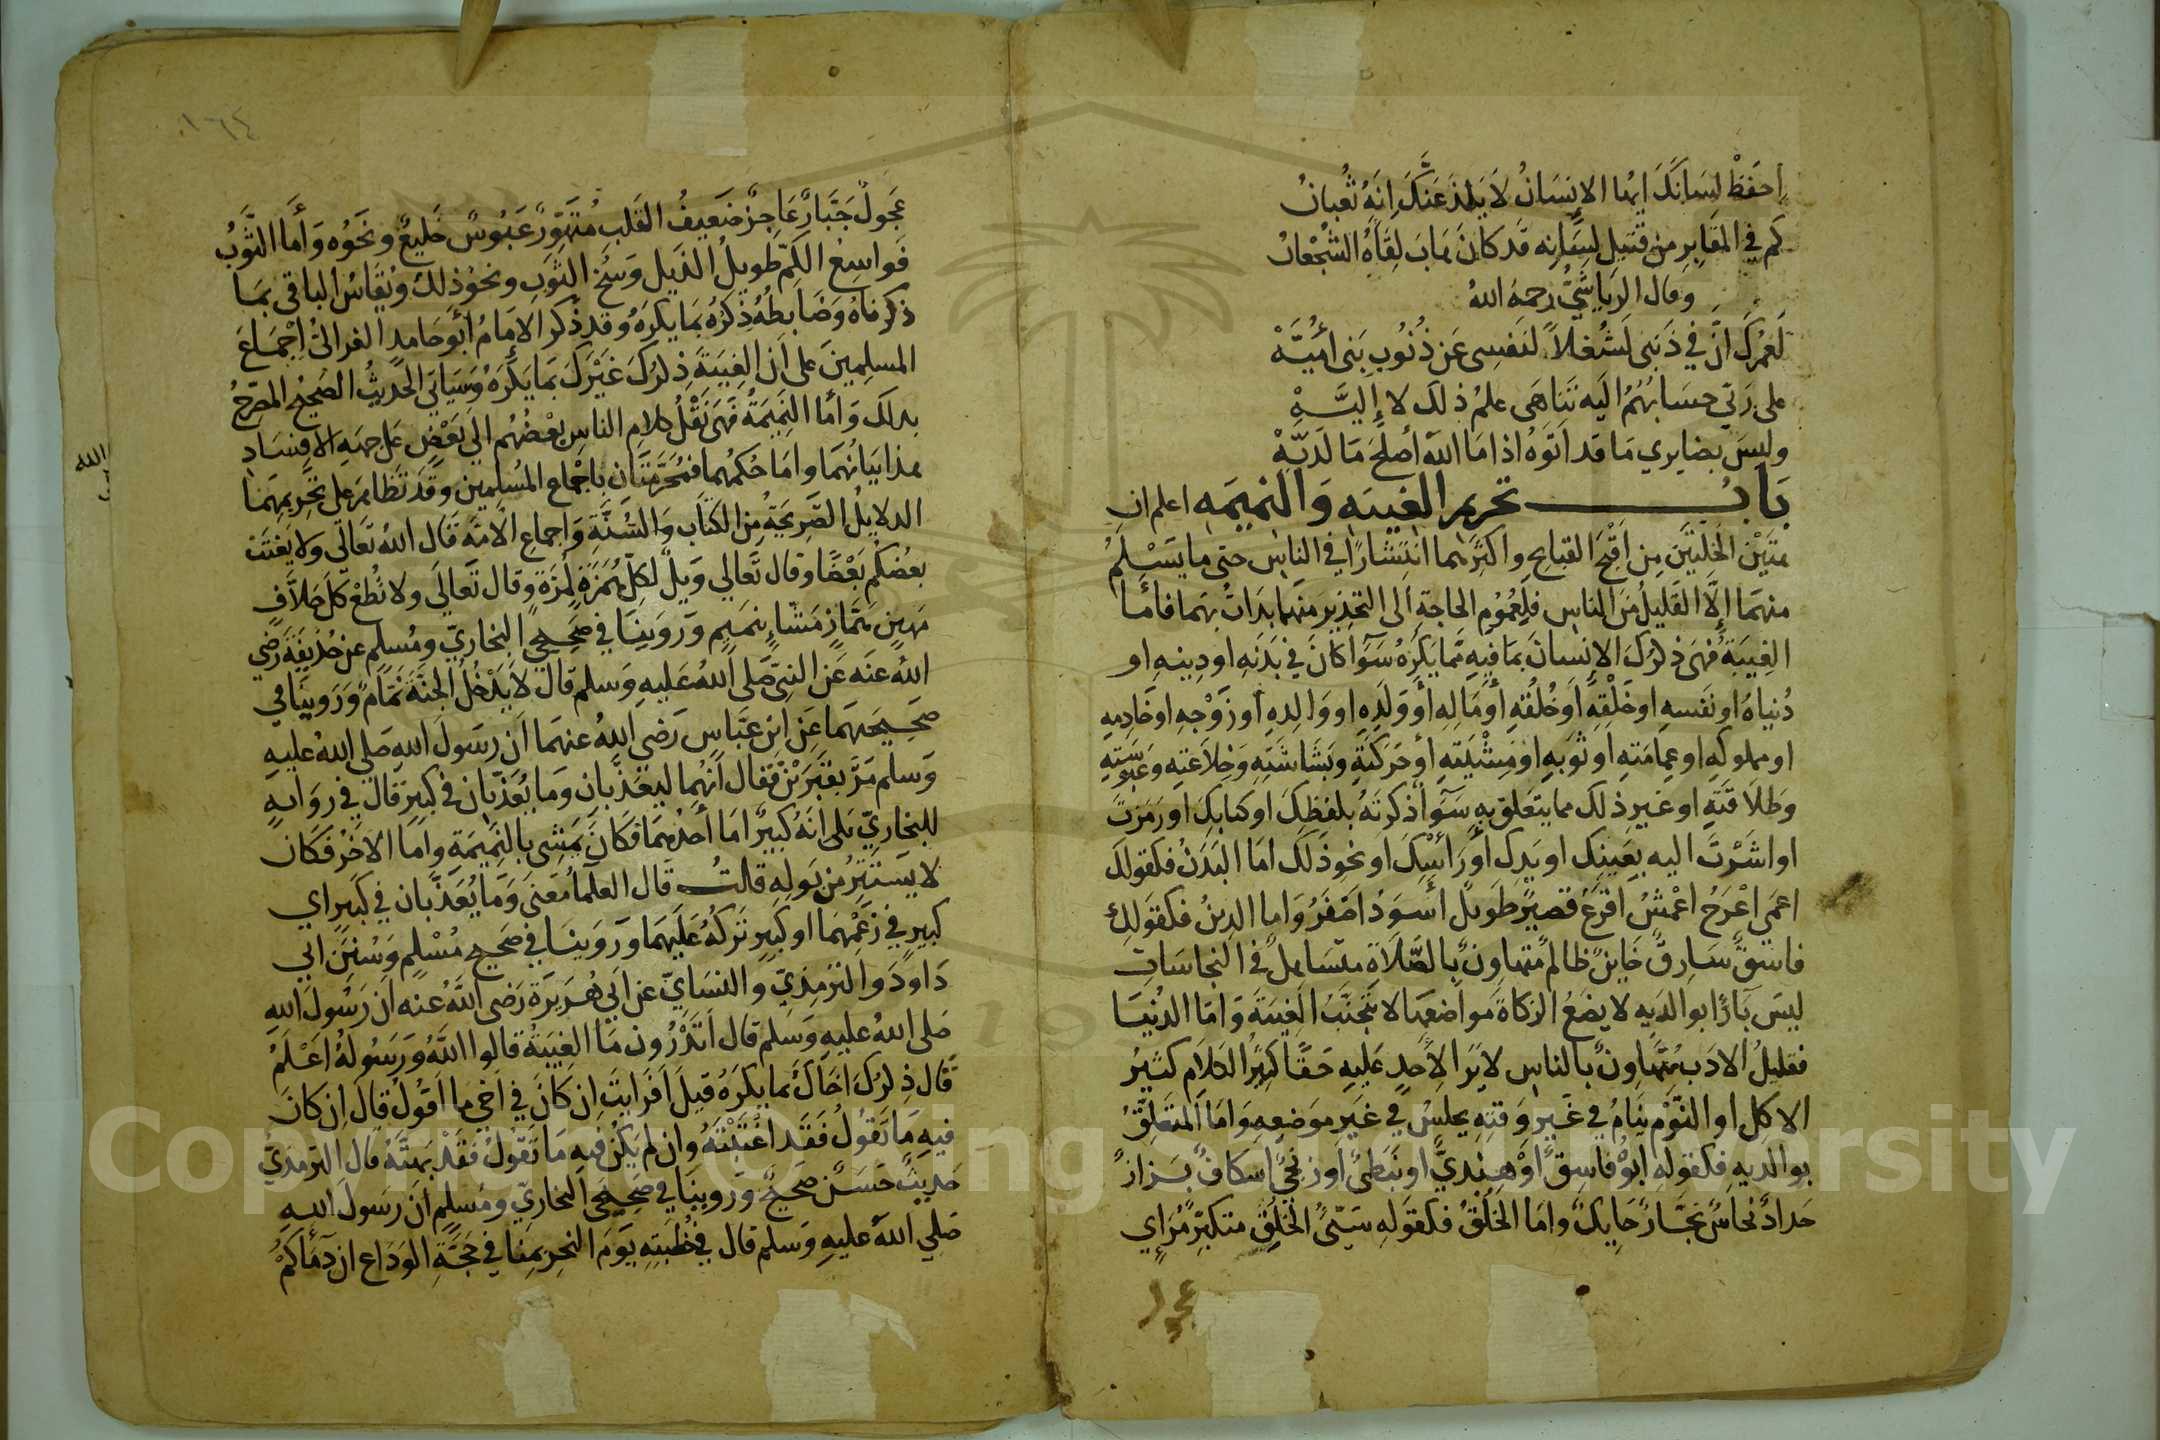 احفَظْ لِسَانَكَ ايها الانسَانُ لَا يَلدَغَنَّكَ اِنَّهُ ثُعبانُ
كم فِي المَقَابِرِ مِن قَتيلِ لِسَانِه قَد كانَ هَابَ لِقَاهُ الشُّجْعانُ
وقال الرِيَاشيُّ رحمه اللهُ
لَعَمْرُكَ اِنَّ فِي ذَنبى لَشُغلاً لنَفسِى عَن ذُنُوبِ بَنى أُمَيَّهْ
على رَبّي حِسَابُهُمُ اليَه تَنَاهَى علمُ ذلكَ لا إِلَيَّهْ
وليسَ بضايري مَا قَد اَتَوهُ اذا مَا اللهُ أصلحَ مَا لَدَيَّهْ
بَابُ تحريم الغيبَه وَالنميمَه اعلم ان
هتَيْن الخَلتَيَن مِن اقْبَح القبايح واكثرها انتِشارًا في الناس حتى ما يَسْلَمُ
منهمَا إلَّا القَليلُ مَن الناسِ فَلِعُمُومِ الحاجَةِ الى التحذيرِ منهَا بَدَاتُ بهما فأمَّا
الغِيبَةِ فهىَ ذِكرُكَ الاِنسانَ بمَا فِيهِ مّما يكرَهُ سَوَآ كانَ في بَدَنِهِ او دِينِهِ او
دُنياهُ او نَفسِهِ او خَلْقِهِ أَو خُلُقهِ أو مَالِهِ أو وَلَدِهِ او وَالِدِهِ او زَوْجِهِ او خَادِمِهِ
او مملوكهِ او عِمامَتهِ او ثوبَهِ او مِشْيَتهِ أو حَركتَهِ وبَشَاشَتهِ وَخلاعَتهِ وعبوسَتهِ
وَطلَاقَتهِ او غيرِ ذلك مما يتعَلق بهِ سَوَآ ذكرتَهُ بلَفظِكَ او كتابكَ او رَمَزتَ
او اشَرْتَ اليه بعَينِك او يَدِك أو رَأسِكَ او نحوِ ذلَكَ امَا البَدَنُ فكقولكَ
اعمَى اعْرَجُ اعْمشُ اقرَعُ قَصيرٌ طَويلٌ أسوَدُ اصْفَرُ وَاما الدِينُ فكقَولكِ
فاسِقٌ سَارِقٌ خَاينٌ ظالمٌ مُتهاوِنٌ بالصَّلاةِ متسَاهلٌ في النجاسَاتِ
ليسَ بَآرًّا بوالدَيهِ لا يضَعُ الزكاةَ مَواضعَها لا يَتجَنَّبُ الغِيبَةَ وَامَا الدُنيَا
فقليلُ الادَب مُتَهاوِنٌ بالناسِ لا يَرَا لِأَحدٍ عَليهِ حَقًّا كثيرُ الكلام كثيرُ
الاكل او النَّوَم ينَامُ في غَيرِ وَقتِهِ يجلسُ في غيَرِ مَوضِعِهِ وَامَا المتعَلِّقُ
بوالديهِ فكقولِهِ ابُوْه فاسِقٌ أوْ هِنديٌّ او نبَطىٌّ او زنجيٌّ اسكافٌ بَزازٌ
حَدادٌ نحاسٌ نجَّارٌ حَايِكٌ وامَا الخَلَقُ فكقوَلهِ سَيّئُ الخُلُقِ متكبِّرٌ مُرَاي
١٦٤
عَجولٌ جَبَّارٌ عَاجِزٌ ضَعيفُ القَلبِ مُتَهَوِّرٌ عَبُوسٌ خَليعٌ ونَحوُه وَأَمَّا الثَّوبُ
فَواسِعُ الكُمّ طَويلُ الذَيلِ وَسِخُ الثَوبِ ونحوُ ذلك ويُقَاسُ الباقى بمَا
ذكرناهُ وَضَابِطُهُ ذِكرُهُ بمَا يكرَهُ وقَد ذكرَ الامَامُ أبو حَامدٍ الغزالىُّ اِجْمَاعَ
المسلمينَ على اَن الغِيبَةَ ذِكرُكَ غَيْرَكَ بمَا يَكْرَهُ وَسَيَاتي الحَديثُ الصَحيحُ المصَرّحُ
بدلكَ وَأمَّا النَميمَةُ فَهىَ نَقْلُ كلامِ الناسِ بَعْضُهُم الى بَعْضٍ عَلى جهَةِ الافسَادِ
هذا بَيَانُهَما وامَا حُكمُهما فمُحَرَّمَتَان باجْماعِ المُسلمينَ وَقَدْ تظَاهَرَ على تَحريمِهمَا
الدلايلُ الصَرِيحَةُ مِنَ الكتَاب وَالسُّنَّةِ وَاجماعِ الاُمّةِ قَالَ اللهُ تعَالى ولا يَغتَبْ
بعضُكُم بَعْضًا وقال تعَالى وَيلٌ لكلّ هُمَزةٍ لُمزَةٍ وقال تعَالى ولا تُطعْ كلّ حَلاَّفٍ
مَهينٍ همَّازٍ مَشَّاءٍ بنَميمٍ وَرَوَينَا في صَحيحَي البخاريّ ومُسلمٍ عَن حُذيفةَ رَضي
اللهُ عَنه عَن النبيّ صَلى اللهُ عَليهِ وَسلم قالَ لَا يَدْخُل الجنّةَ نمّامٌ وَرَوينَا في
صَحيحَيهمَا عَن ابن عبَّاسٍ رَضى اللهُ عنهمَا اَن رسَولَ اللهِ صَلى اللهُ عليهِ
وَسلم مَرَّ بقبرَيْن فقال اَنهُما ليعَذَّبان وَما يُعَذَّبَان في كبيرٍ قَالَ في رِوَايهٍ
للبخاريّ بَلى انهُ كبيرٌ امَا أحدُهُمَا فكَانَ يَمشِى بالنَميمَةِ وَامَا الاخَرُ فكَانَ
لا يَستَتِرُ من بَولِهِ قلتُ قالَ العلمآُ مَعنَى وَمَا يُعَذَّبان في كبيَرٍ اي
كبيرٍ في زَعْمِهمَا او كبيرٍ تَركُهُ عَلَيهمَا وَرَوينَا في صَحيحِ مُسْلمٍ وَسُننِ ابي
دَاودَ والترمذِيّ والنسَايّ عن ابي هُرَيرَة رَضى اللهُ عنه اَن رَسُولَ اللهِ
صَلى اللهُ عليهِ وَسَلم قال اَتَدْرُون مَا الغِيبَةُ قالوا اللهُ وَرَسُولُهُ اعْلَمُ
قَالَ ذِكرُكَ اخاكَ بما يكرَهُ قيلَ اَفَرَايتَ اِن كانَ في اخي ما اقولُ قالَ اِن كانَ
فيهِ مَا تَقُولُ فَقَد اغتَبْتَهُ وَان لم يَكُن فيهِ مَا تقُولُ فَقَدْ بَهتَّهُ قالَ الترمذيُّ
حَديثٌ حَسَنٌ صَحيحٌ وَرَوينَا في صَحيحَي البخاريّ ومُسلمٍ اَن رسَولَ اللهِ
صَلي اللهُ عليهِ وَسَلم قال في خُطبَتِهِ يَومَ النحِر بمنَا في حَجَّةِ الوَدَاعِ ان دِمآءَكُمْ
الله
Copyright © King Saud University